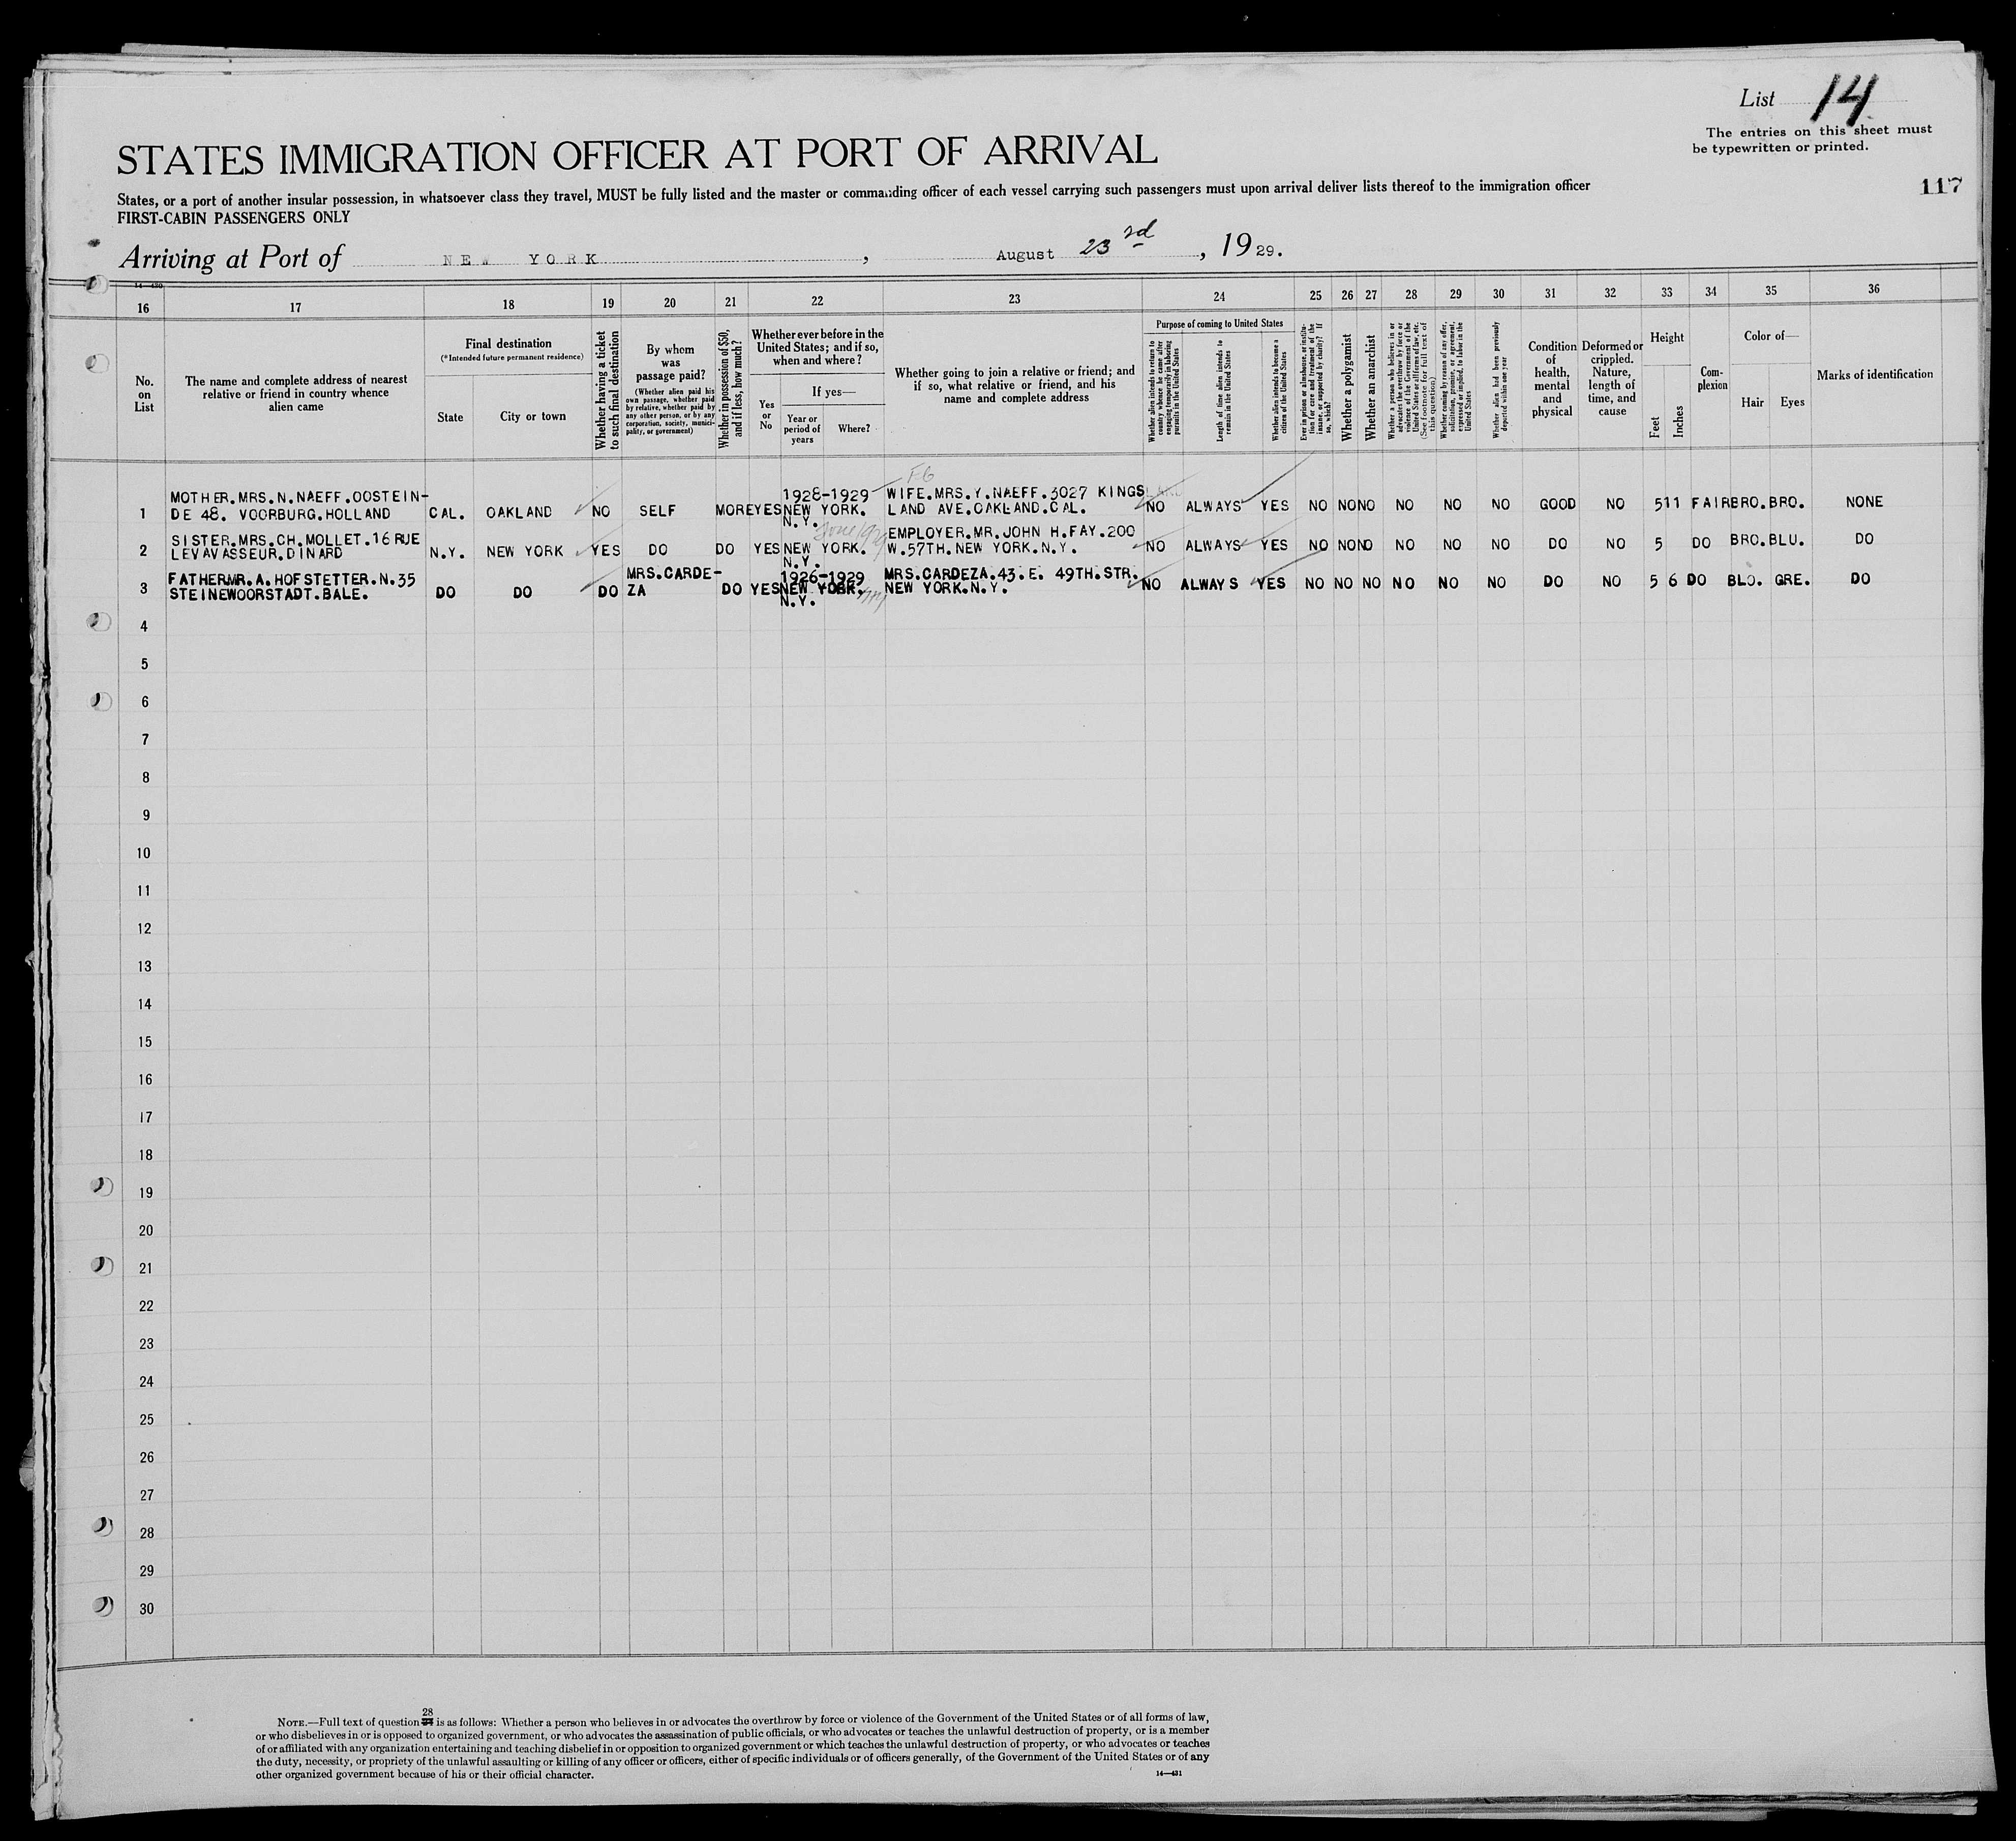 List 14
The entries on this sheet must
be typewritten or printed.
117
STATES IMMIGRATION OFFICER AT PORT OF ARRIVAL
States, or a port of another insular possession, in whatsoever class they travel, MUST be fully listed and the master or commanding officer of each vessel carrying such passengers must upon arrival deliver lists thereof to the immigration officer
FIRST-CABIN PASSENGERS ONLY
Arriving at Port of NEW YORK, August 23rd, 1929.
16 17 18 19 20 21 22 23 24 25 26 27 28 29 30 31 32 33 34 35 36
No. on List
The name and complete address of nearest
relative or friend in country whence
alien came
Final destination
(*Intended future permanent residence)
State
City or town
Whether having a ticket
to such final destination
By whom
was
passage paid?
(Whether alien paid his
own passage, whether paid
by relative, whether paid by
any other person, or by any
corporation, society, munici-
pality, or government)
Whether in possession of $50,
and if less, how much?
Whether ever before in the
United States; and if so,
when and where?
Yes
or
No
If yes—
Year or
period of
years
Where?
Whether going to join a relative or friend; and
if so, what relative or friend, and his
name and complete address
Purpose of coming to United States
Whether alien intends to return to
country whence he came after
engaging temporarily in laboring
pursuits in the United States
Length of time alien intends to
remain in the United States
Whether alien intends to become a
citizen of the United States
Ever in prison or almshouse, or institu-
tion for care and treatment of the
insane, or supported by charity? If
so, which?
Whether a polygamist
Whether an anarchist
Whether a person who believes in or
advocates the overthrow by force or
violence of the Government of the
United States or all forms of law, etc.
(See footnote for full text of
this question)
Whether coming by reason of any offer,
solicitation, promise, or agreement,
expressed or implied, to labor in the
United States
Whether alien had been previously
deported within one year
Condition
of
health,
mental
and
physical
Deformed or
crippled.
Nature,
length of
time, and
cause
Height
Feet
Inches
Com-
plexion
Color of—
Hair
Eyes
Marks of identification
1 MOTHER.MRS.N.NAEFF.OOSTEIN-
DE 48. VOORBURG.HOLLAND CAL. OAKLAND NO SELF MORE YES 1928-1929
NEW YORK.
N.Y. WIFE.MRS.Y.NAEFF.3027 KINGS
LAND AVE.OAKLAND.CAL. NO ALWAYS YES NO NO NO NO NO NO GOOD NO 5 11 FAIR BRO. BRO. NONE
2 SISTER.MRS.CH.MOLLET.16 RUE
LEVAVASSEUR.DINARD N.Y. NEW YORK YES DO DO YES NEW YORK.
N.Y. EMPLOYER.MR.JOHN H.FAY.200
W.57TH.NEW YORK.N.Y. NO ALWAYS YES NO NO NO NO NO NO DO NO 5 DO BRO. BLU. DO
3 FATHER MR.A.HOFSTETTER.N.35
STEINEWOORSTADT.BALE. DO DO DO MRS.CARDE-
ZA DO YES 1926-1929
NEW YORK.
N.Y. MRS.CARDEZA.43.E. 49TH.STR.
NEW YORK.N.Y. NO ALWAYS YES NO NO NO NO NO NO DO NO 5 6 DO BLO. GRE. DO
4
5
6
7
8
9
10
11
12
13
14
15
16
17
18
19
20
21
22
23
24
25
26
27
28
29
30
28
NOTE.—Full text of question is as follows: Whether a person who believes in or advocates the overthrow by force or violence of the Government of the United States or of all forms of law,
or who disbelieves in or is opposed to organized government, or who advocates the assassination of public officials, or who advocates or teaches the unlawful destruction of property, or is a member
of or affiliated with any organization entertaining and teaching disbelief in or opposition to organized government or which teaches the unlawful destruction of property, or who advocates or teaches
the duty, necessity, or propriety of the unlawful assaulting or killing of any officer or officers, either of specific individuals or of officers generally, of the Government of the United States or of any
other organized government because of his or their official character.
14—431